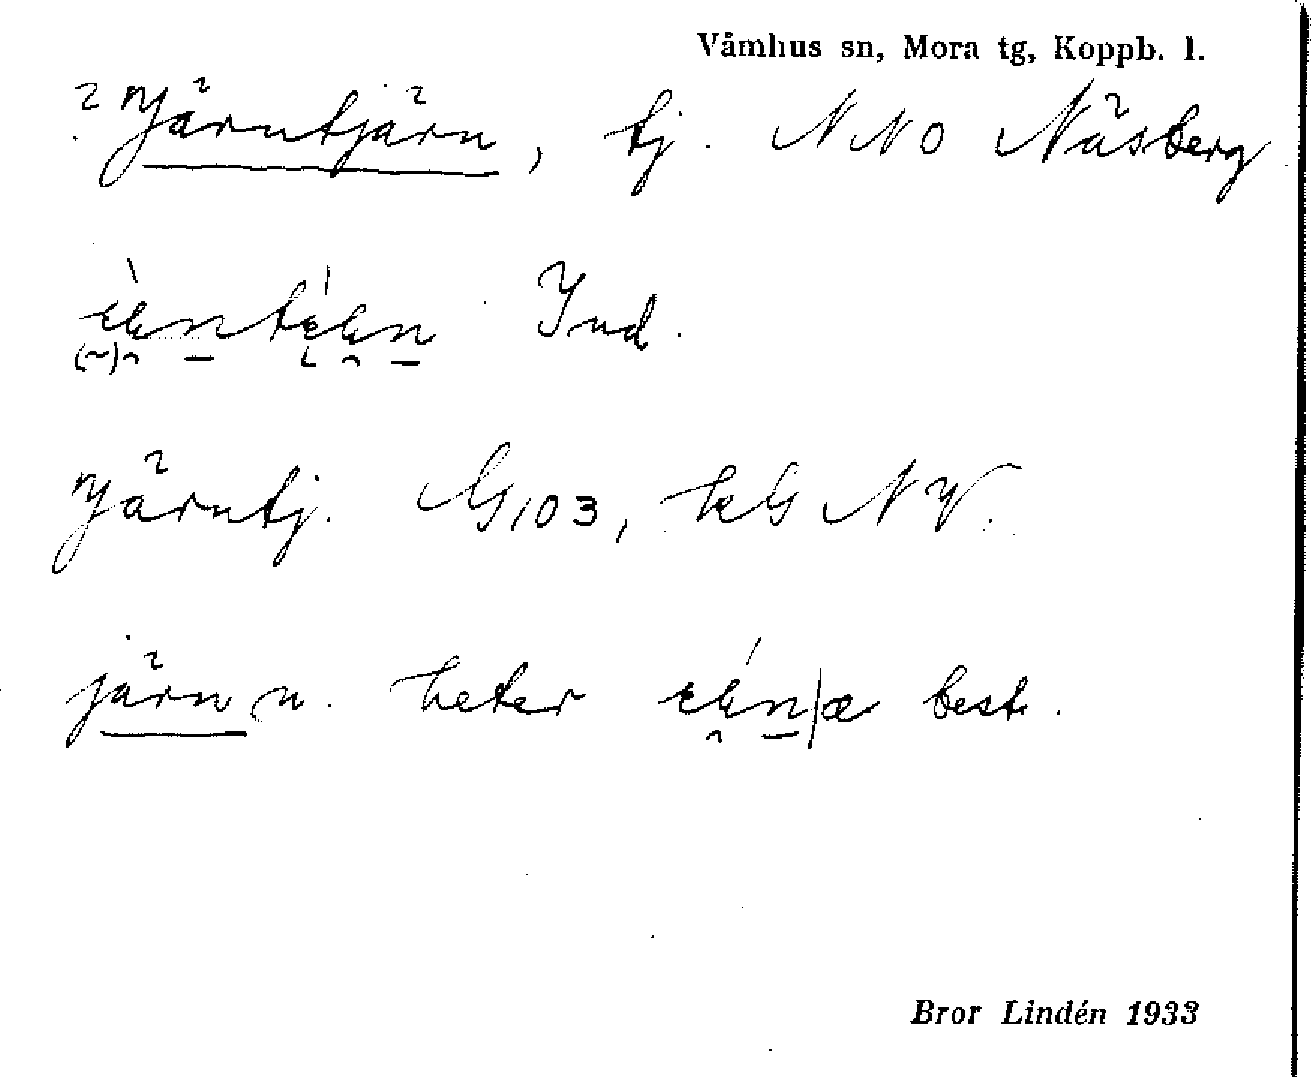 Våmhus sn, Mora tg, Koppb. l.
? Järntjärn, tj. NNO Näsberg
Ind.
Järntj. G103, kG NV.
järn n. heter best.
Bror Lindén 1933